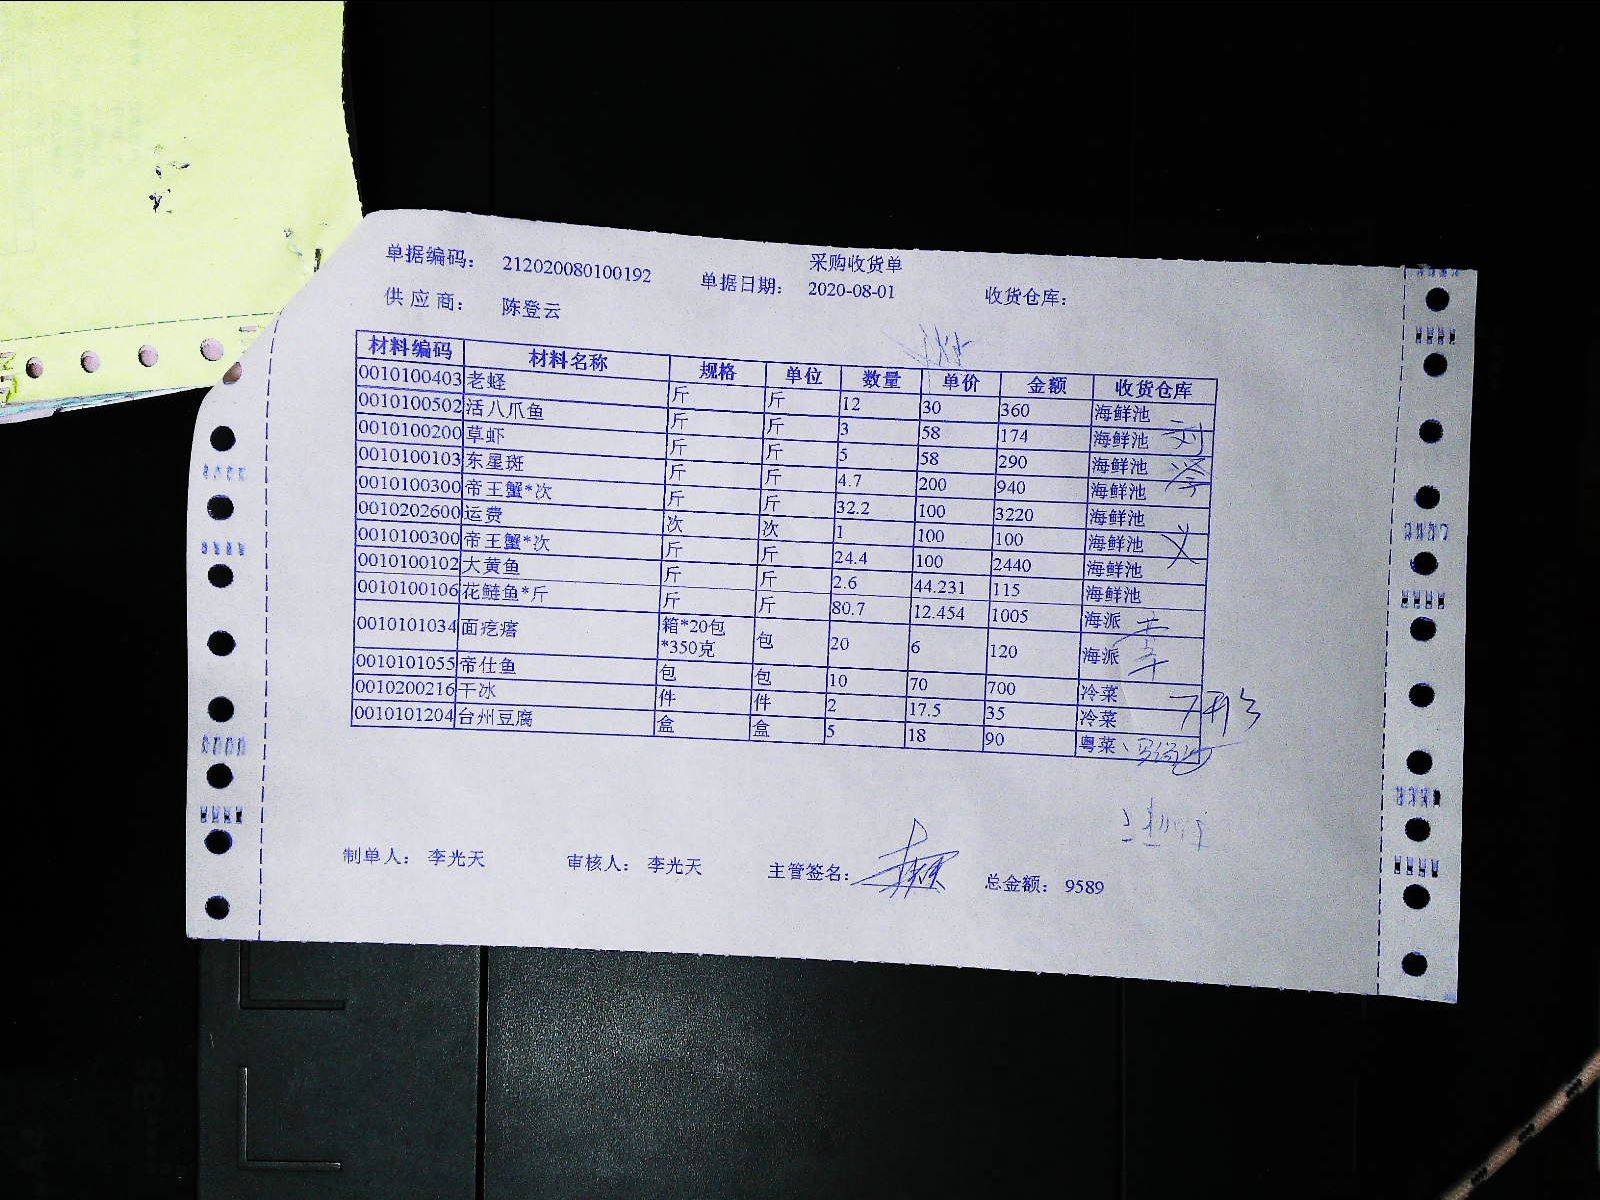 采购收货单
单据编码： 212020080100192 单据日期： 2020-08-01 收货仓库：
供 应 商： 陈登云
材料编码 材料名称 规格 单位 数量 单价 金额 收货仓库
0010100403 老蛏 斤 斤 12 30 360 海鲜池
0010100502 活八爪鱼 斤 斤 3 58 174 海鲜池
0010100200 草虾 斤 斤 5 58 290 海鲜池
0010100103 东星斑 斤 斤 4.7 200 940 海鲜池
0010100300 帝王蟹*次 斤 斤 32.2 100 3220 海鲜池
0010202600 运费 次 次 1 100 100 海鲜池
0010100300 帝王蟹*次 斤 斤 24.4 100 2440 海鲜池
0010100102 大黄鱼 斤 斤 2.6 44.231 115 海鲜池
0010100106 花鲢鱼*斤 斤 斤 80.7 12.454 1005 海派
0010101034 面疙瘩 箱*20包*350克 包 20 6 120 海派
0010101055 帝仕鱼 包 包 10 70 700 冷菜
0010200216 干冰 件 件 2 17.5 35 冷菜
0010101204 台州豆腐 盒 盒 5 18 90 粤菜
制单人： 李光天 审核人： 李光天 主管签名： 总金额： 9589